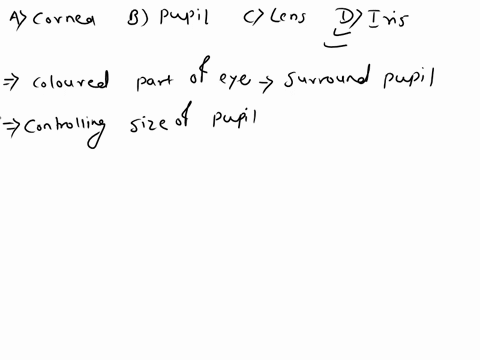 A> Cornea B) Pupil C> Lens D> Iris
⇒ Coloured part of eye → Surround pupil
⇒ Controlling size of pupil